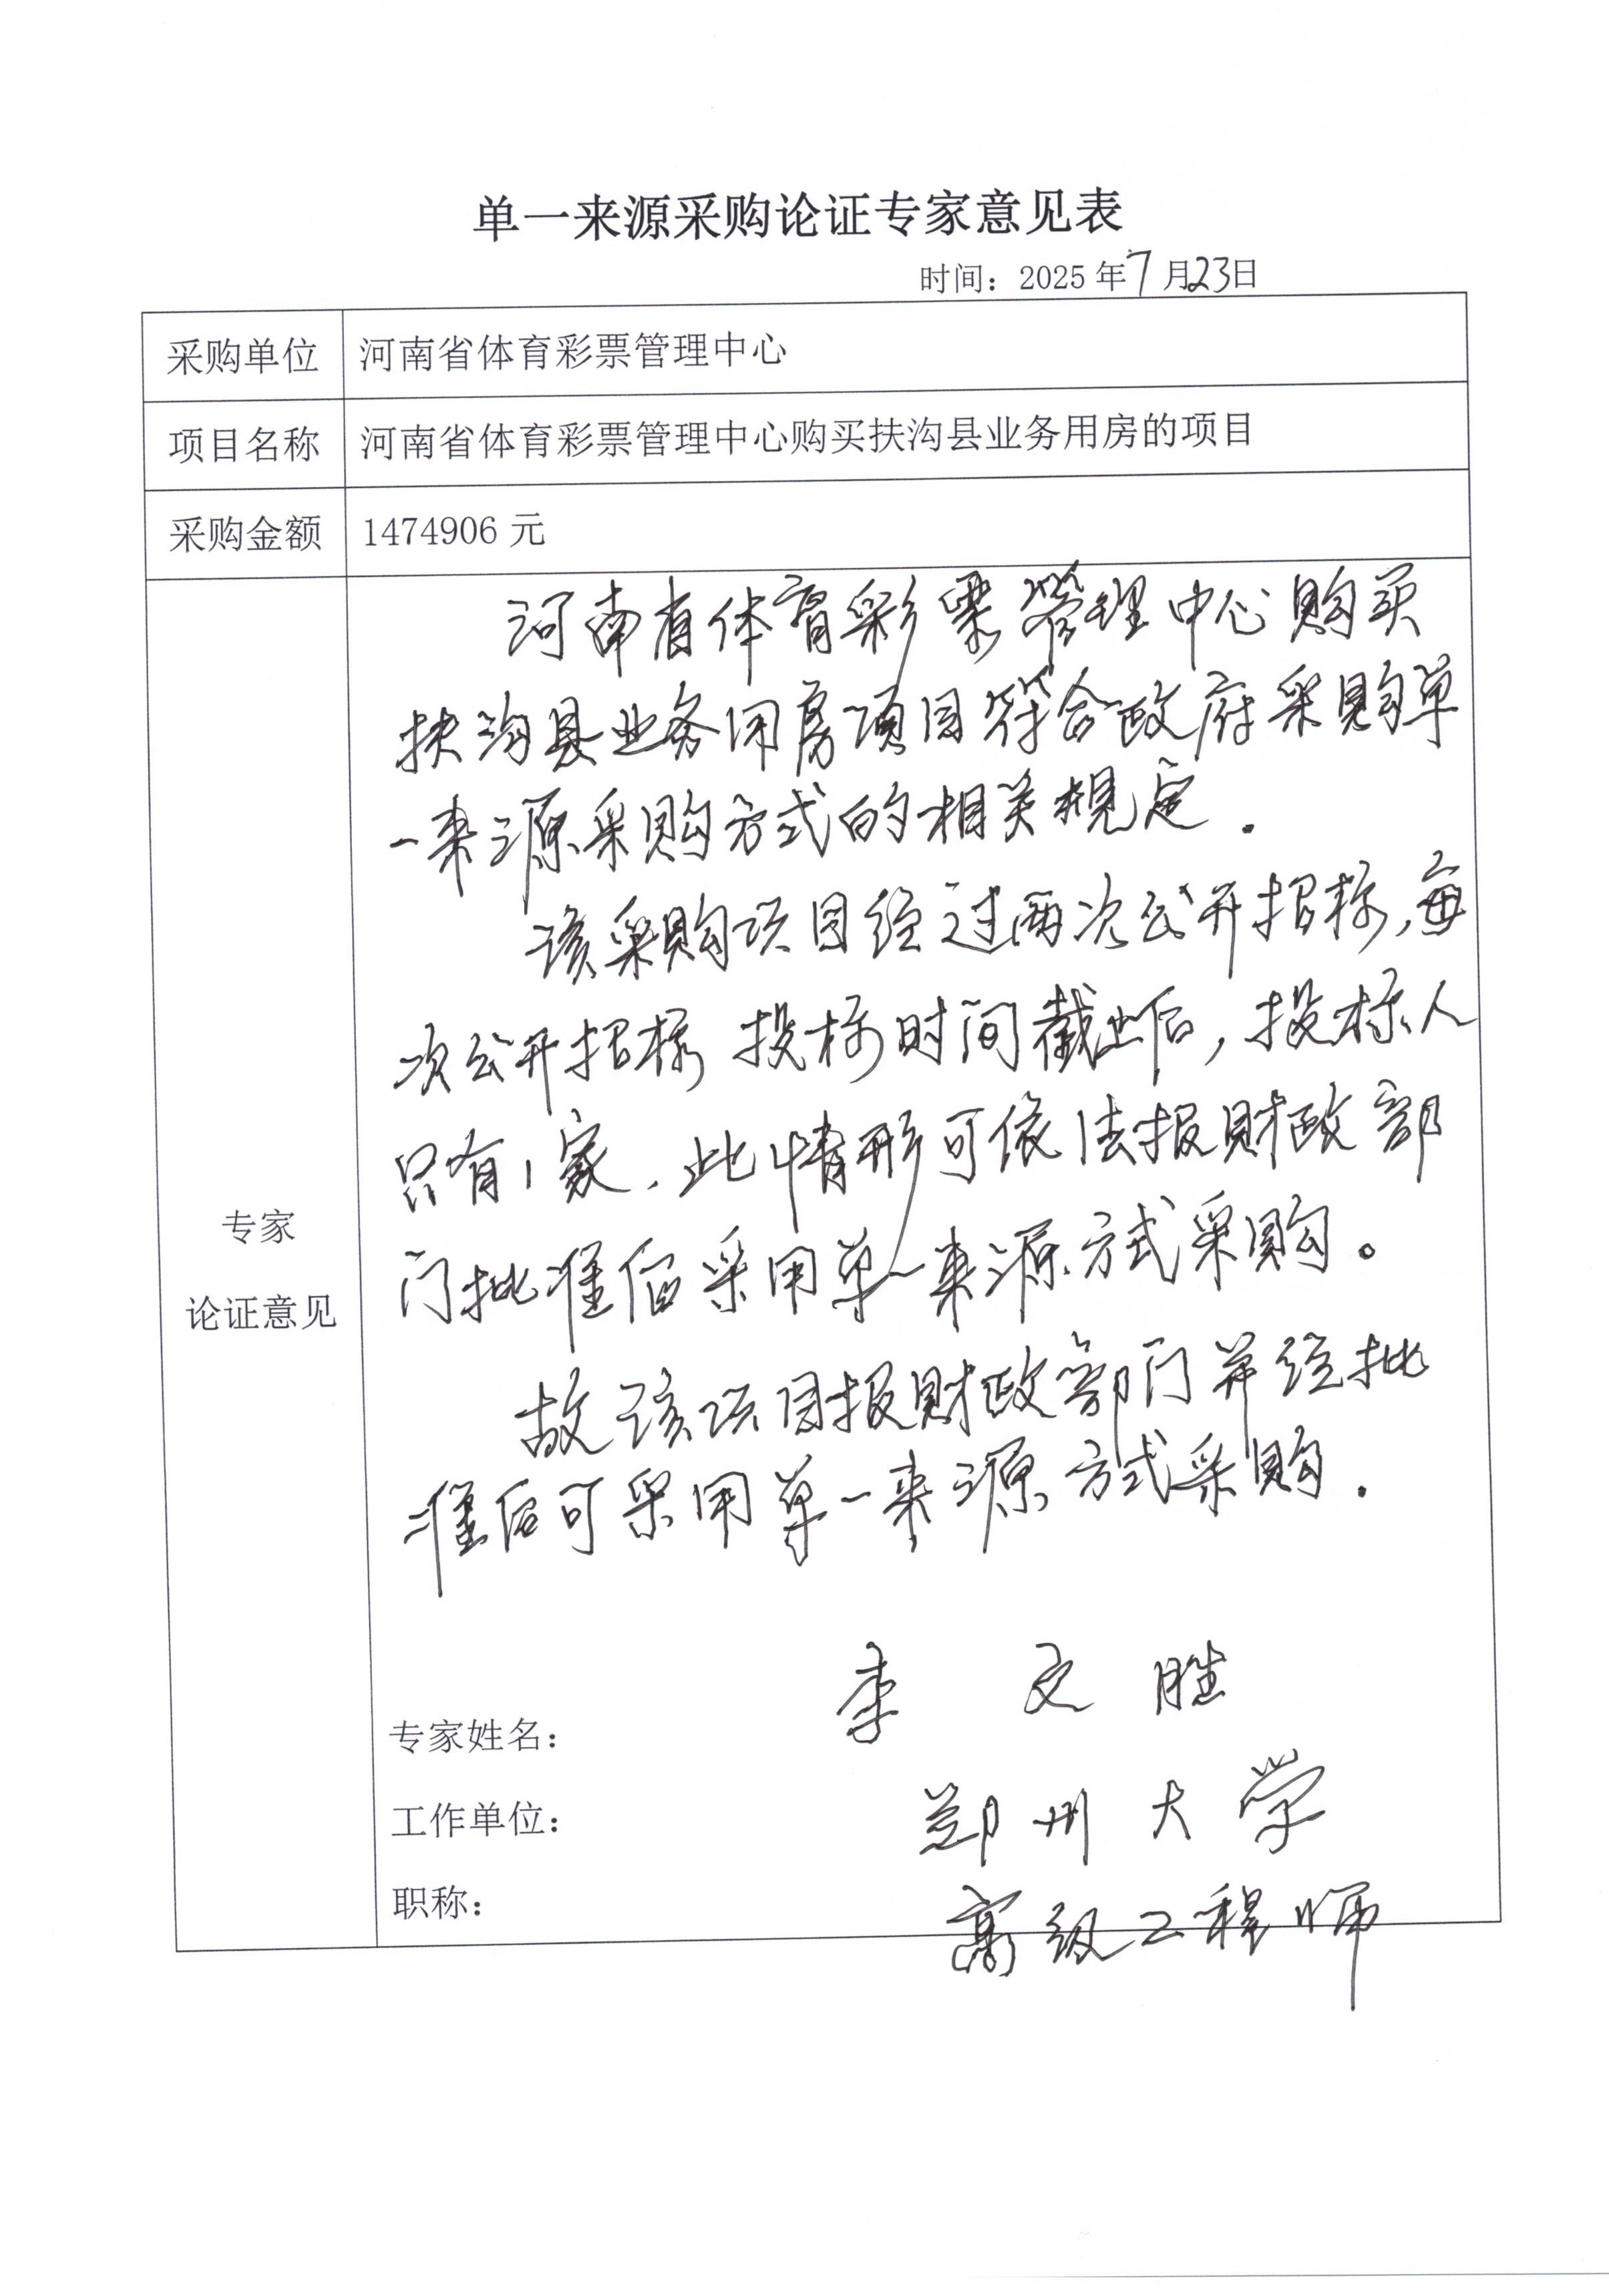 单一来源采购论证专家意见表
时间：2025年7月23日
采购单位 河南省体育彩票管理中心
项目名称 河南省体育彩票管理中心购买扶沟县业务用房的项目
采购金额 1474906元
河南省体育彩票管理中心购买
扶沟县业务用房项目符合政府采购单
一来源采购方式的相关规定.
该采购项目经过两次公开招标,每
次公开招标投标时间截止后,投标人
只有1家.此情形可依法报财政部
门批准后采用单一来源方式采购。
专家
论证意见
故该项目报财政部门并经批
准后可采用单一来源方式采购.
专家姓名： 李文胜
工作单位： 郑州大学
职称： 高级工程师